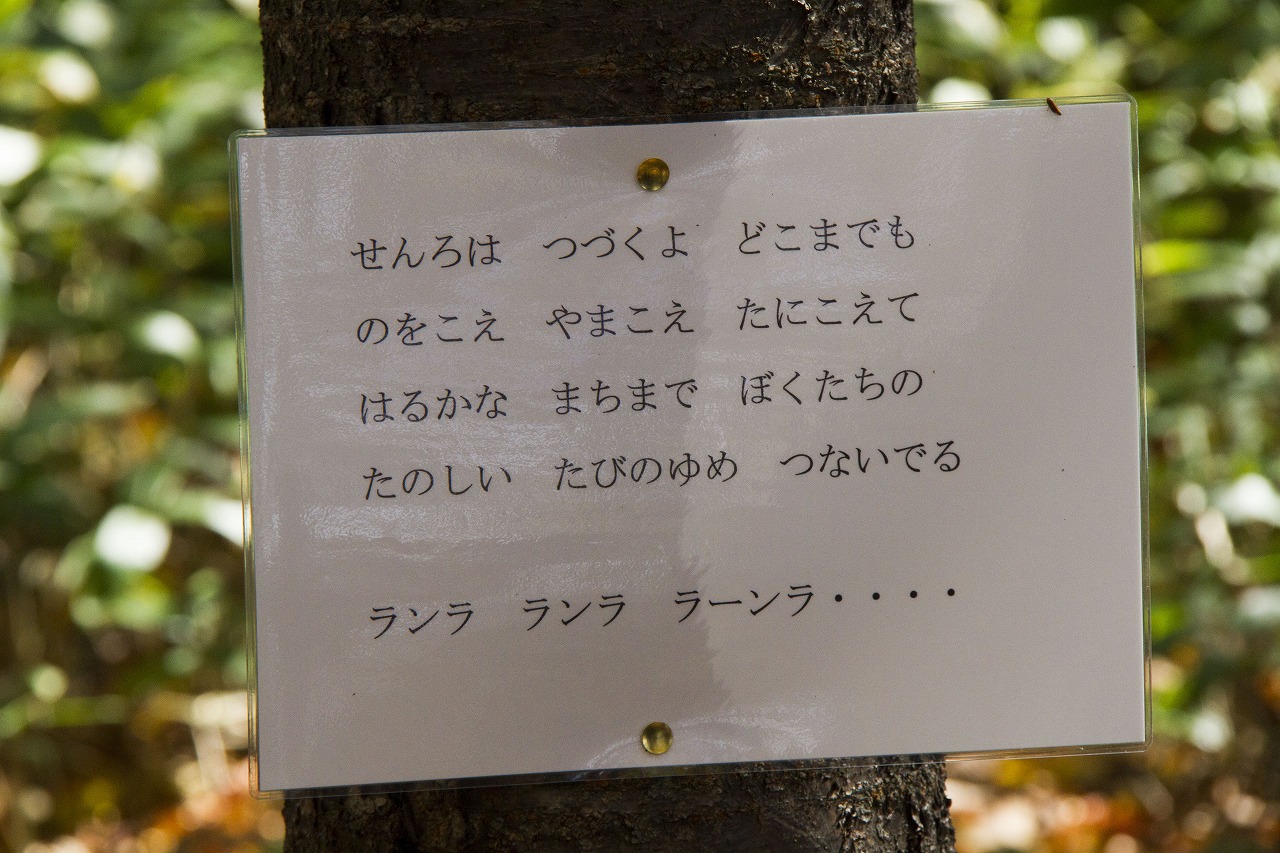 せんろは　つづくよ　どこまでも
のをこえ　やまこえ　たにこえて
はるかな　まちまで　ぼくたちの
たのしい　たびのゆめ　つないでる
ランラ　ランラ　ラーンラ・・・・